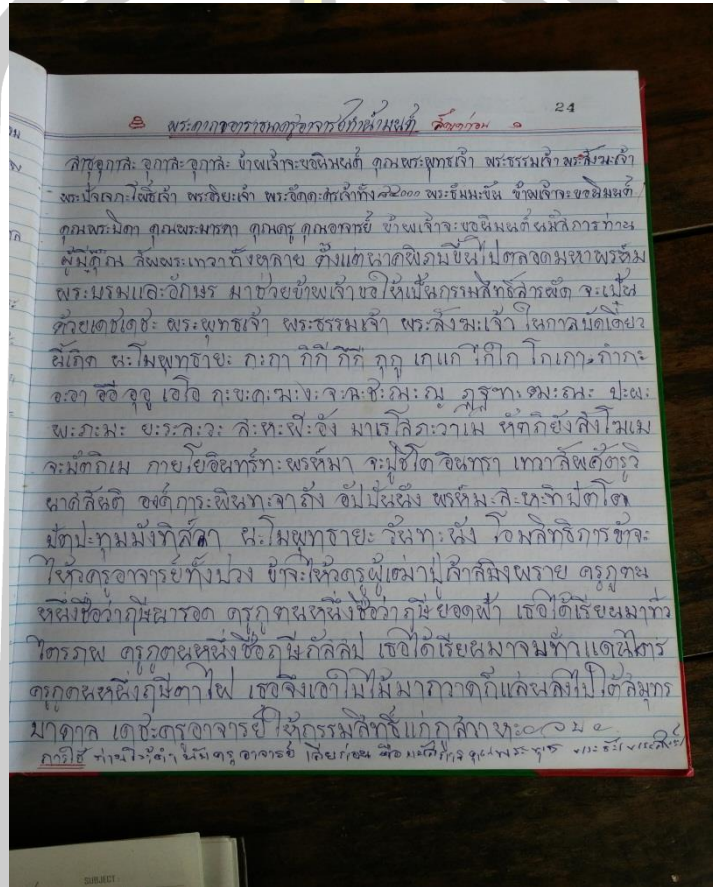 24
พระคาถาอาราธนาครูอาจารย์ทำน้ำมนต์
สาธุอุกาสะ อุกาสะ อุกาสะ ข้าพเจ้าจะขอนิมนต์ คุณพระพุทธเจ้า พระธรรมเจ้า พระสังฆะเจ้า
พระปัจเจกะโพธิ์เจ้า พระอริยะเจ้า พระอัคคะสาวเจ้าทั้ง ๘๔๐๐๐ พระธัมมะขัน ข้าพเจ้าจะขอนิมนต์
คุณพระบิดา คุณพระมารดา คุณครู คุณอาจารย์ ข้าพเจ้าจะขอนิมนต์นมัสการท่าน
ผู้มีคุณ สัพพระเทวาทั้งหลาย ตั้งแต่นาคพิภพขึ้นไปตลอดมหาพรหม
พระบรมและอักษร มาช่วยข้าพเจ้าขอให้เป็นกรรมสิทธิ์สารพัด จะเป็น
ด้วยเดชเดชะ พระพุทธเจ้า พระธรรมเจ้า พระสังฆะเจ้า ในกาลบัดเดี๋ยว
นี้เถิด นะโมพุทธายะ กะกา กิกี กึกื กุกู เกแก ไกใก โกเกา กำกะ
อะอา อิอี อุอู เอโอ กะขะคะฆะงะ จะฉะชะฌะญะ
พะภะมะ ยะระละวะ สะหะฬะอัง มาเรโสภะวาเม หัตถิยังสิงโฆเม
จะมัตถิเม กายโยอินทร์ทะพรหมา จะปูชิโต อินทรา เทวาสัพศัตรูวิ
นาศสันติ องค์การะพินทะจาถัง อัปปันนึง พรหมะสะหะทิปติโต
ปัตปะทุมมังทิส์วา นะโมพุทธายะ วันทะนัง โอมสิทธิการข้าจะ
ไหว้ครูอาจารย์ทั้งปวง ข้าจะไหว้ครูผู้เฒ่าปู่เจ้าสมิงพราย ครูกูตน
หนึ่งชื่อว่าฤษีนารอด ครูกูตนหนึ่งชื่อว่าฤษียอดฟ้า เธอได้เรียนมาทั่ว
ไตรภพ ครูกูตนหนึ่งชื่อฤษีกัสสป เธอได้เรียนมาจบทั่วแดนไตร
ครูกูตนหนึ่งฤษีตาไฟ เธอจึงเอาใบไม้มากวาดก็แล่นลงไปใต้สมุทร
บาดาล เดชะครูอาจารย์ให้กรรมสิทธิ์แก่กูสวาหะ
การใช้ ท่านให้ ครูอาจารย์ เสียก่อน
SUBJECT